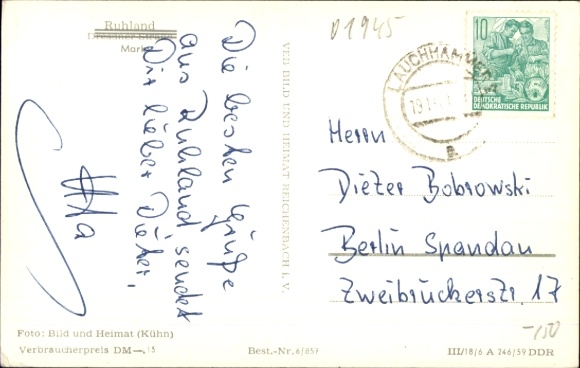 Ruhland
Dresdner Straße
Markt
Die besten Grüße
aus Ruhland sendet
Dir lieber Dieter,
VEB BILD UND HEIMAT REICHENBACH i. V.
01945
10
DEUTSCHE
DEMOKRATISCHE REPUBLIK
LAUCHHAMMER
Herrn
Dieter Bobrowski
Berlin Spandau
Zweibrückerstr. 17
-150
Foto: Bild und Heimat (Kühn)
Verbraucherpreis DM -.15
Best.-Nr. 6/857
III/18/6 A 246/59 DDR